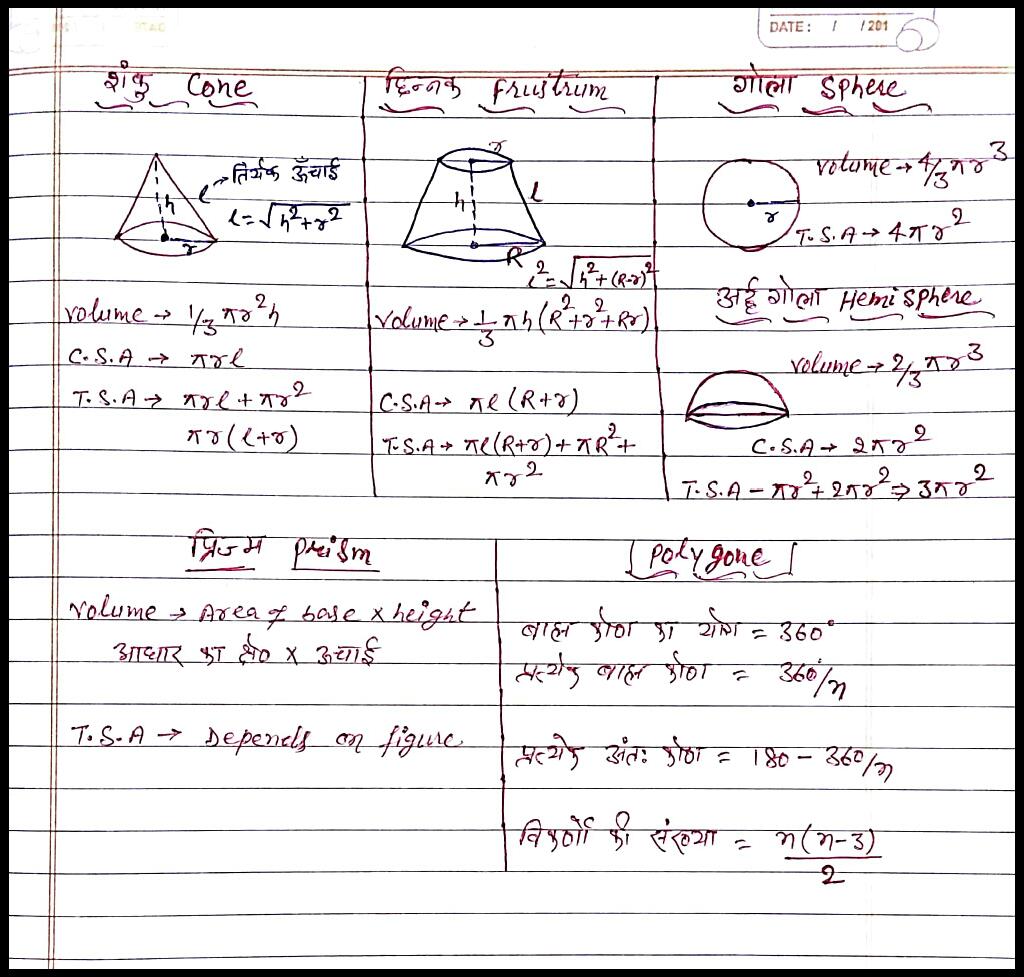 DATE: / /201
शंकु Cone
h
l → तिर्यक ऊँचाई
l = √h²+r²
r
volume → 1/3 πr²h
C.S.A → πrl
T.S.A → πrl + πr²
πr(l+r)
छिन्नक frustrum
r
h
l
R
l² = √h²+(R-r)²
volume → 1/3 πh(R²+r²+Rr)
C.S.A → πl(R+r)
T.S.A → πl(R+r) + πR² +
πr²
गोला Sphere
volume → 4/3 πr³
r
T.S.A → 4πr²
अर्द्ध गोला Hemisphere
volume → 2/3 πr³
C.S.A → 2πr²
T.S.A – πr²+2πr² ⇒ 3πr²
प्रिज्म prism
volume → Area of base × height
आधार का क्षे० × ऊचाई
T.S.A → Depends on figure
[polygone]
बाह्य कोण का योग = 360°
प्रत्येक बाह्य कोण = 360°/n
प्रत्येक अंतः कोण = 180 – 360/n
विकर्णो की संख्या = n(n-3)
2